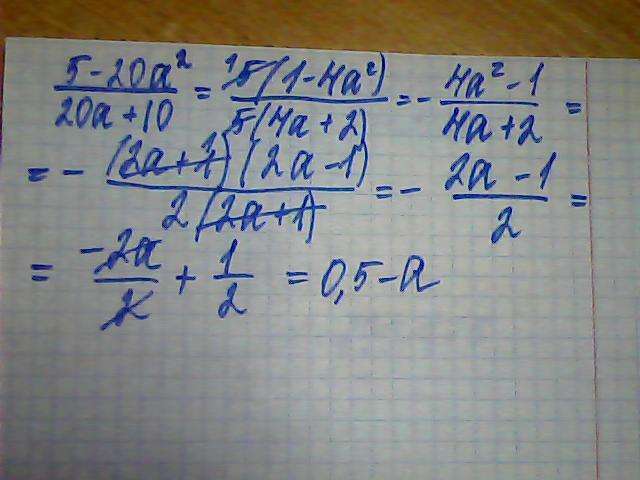 5-20a²/20a+10 = 5(1-4a²)/5(4a+2) = - 4a²-1/4a+2 =
= - (2a+1)(2a-1)/2(2a+1) = - 2a-1/2 =
= -2a/2 + 1/2 = 0,5-a